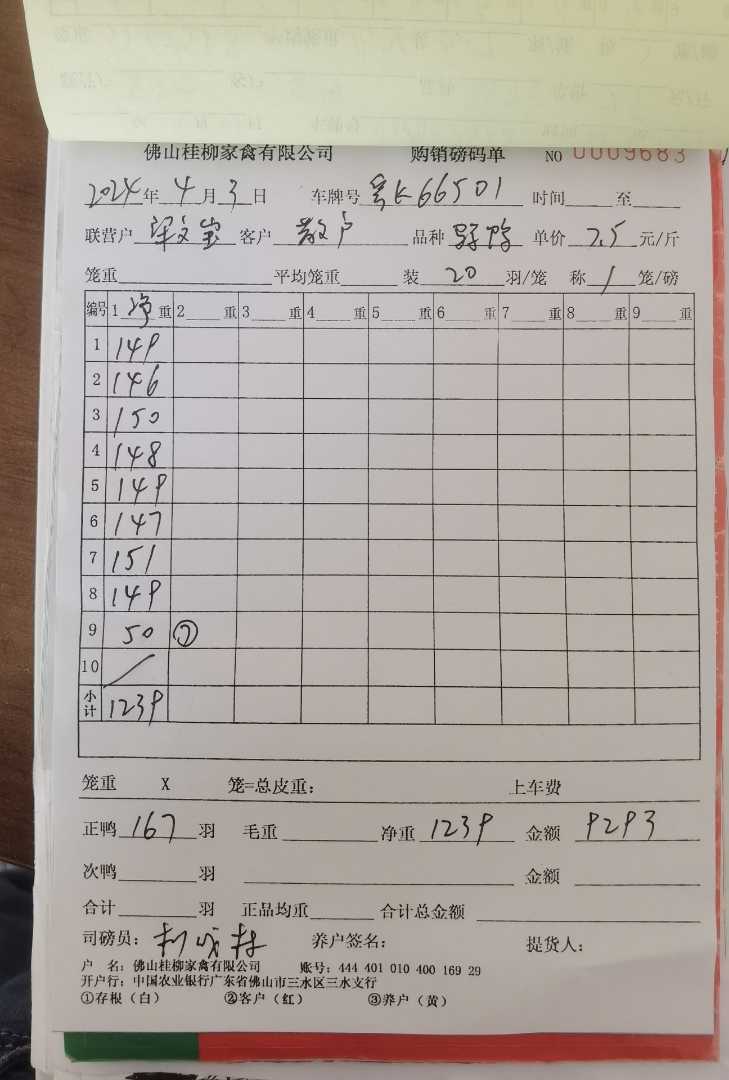 佛山桂柳家禽有限公司 购销磅码单 NO 0009683
2024年4月3日 车牌号 粤K66501 时间 至
联营户 梁文宝 客户 散户 品种 单价 7.5 元/斤
笼重 平均笼重 装 20 羽/笼 称 1 笼/磅
编号 1 净 重 2 重 3 重 4 重 5 重 6 重 7 重 8 重 9 重
1 149
2 146
3 150
4 148
5 149
6 147
7 151
8 149
9 50 ⑦
10 /
小计 1239
笼重 X 笼=总皮重: 上车费
正鸭 167 羽 毛重 净重 1239 金额 9293
次鸭 羽 金额
合计 羽 正品均重 合计总金额
司磅员: 养户签名: 提货人:
户 名: 佛山桂柳家禽有限公司 账号: 444 401 010 400 169 29
开户行: 中国农业银行广东省佛山市三水区三水支行
①存根(白) ②客户(红) ③养户(黄)